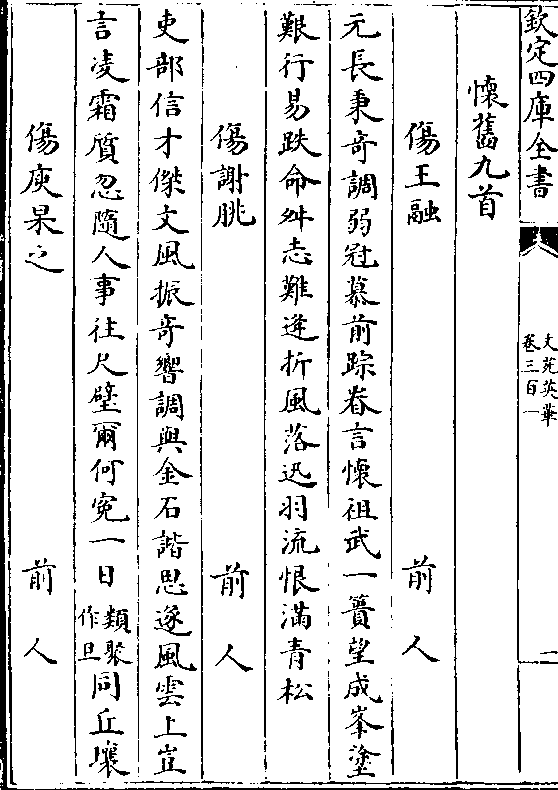 欽定四庫全書
文苑英華
卷三百一
一
懷舊九首
傷王融 前人
元長秉竒調弱冠慕前踪眷言懷祖武一簣望成峯塗
艱行易跌命舛志難逢折風落迅羽流恨滿青松
傷謝朓 前人
吏部信才傑文風振竒響調與金石諧思逐風雲上豈
言凌霜質忽隨人事往尺璧爾何寃一日類聚作旦同丘壤
傷庾杲之 前人